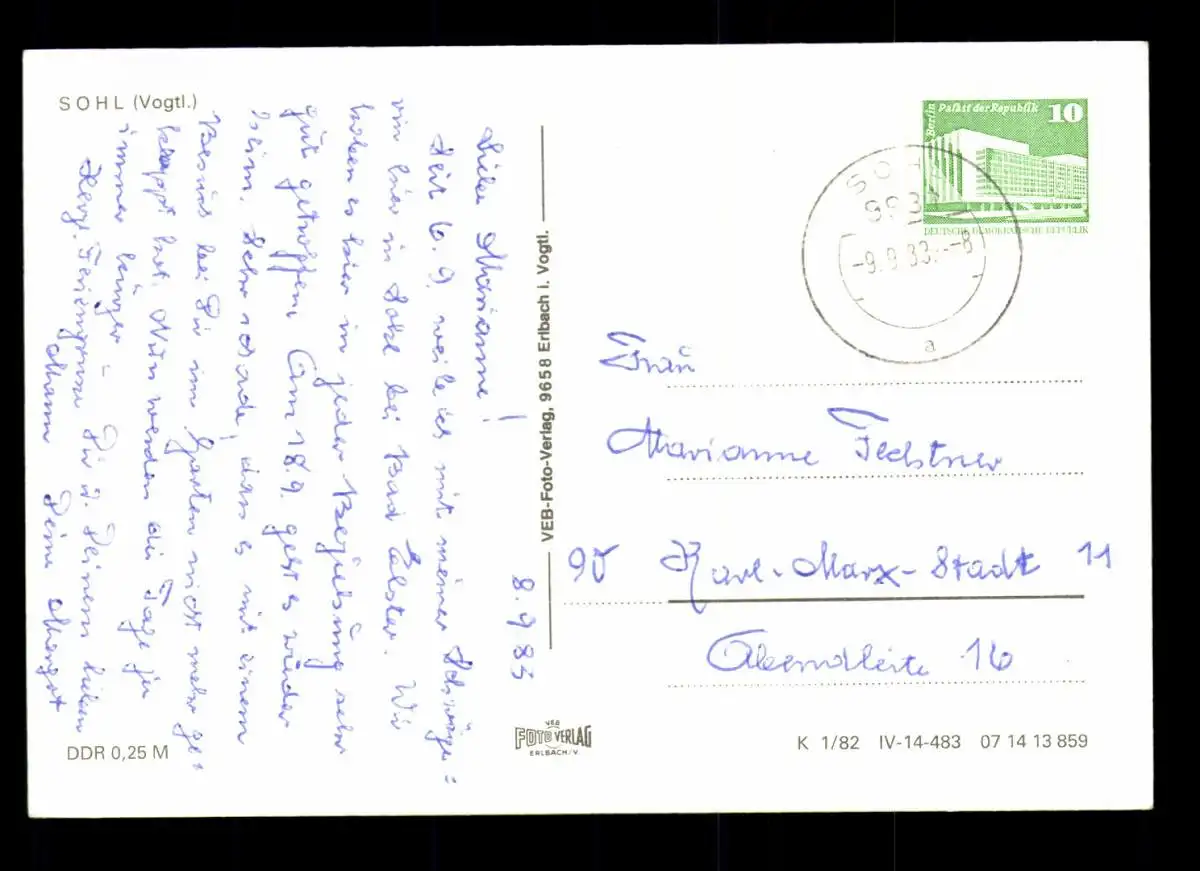 SOHL (Vogtl.)
8.9.83
Liebe Marianne!
Seit 6.9. weile ich mit meiner Schwäge=
rin hier in Sohl bei Bad Elster. Wir
haben es hier in jeder Beziehung sehr
gut getroffen. Am 18.9. geht es wieder
heim. Sehr schade, dass es mit einem
Besuch bei Dir im Garten nicht mehr ge=
klappt hat. Nun werden die Tage ja
immer kürzer –
Herzl. Feriengrüsse Dir u. Deinem lieben
Mann Deine
DDR 0,25 M
VEB-Foto-Verlag, 9658 Erlbach i. Vogtl.
VEB
FOTO VERLAG
ERLBACH/V.
Berlin Palast der Republik 10
DEUTSCHE DEMOKRATISCHE REPUBLIK
SOHL
-9.9.83.--8
a
Frau
Marianne
90 Karl-Marx-Stadt 11
Abendleite 16
K 1/82 IV-14-483 07 14 13 859